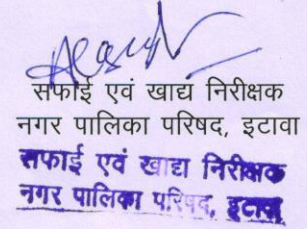 सफाई एवं खाद्य निरीक्षक
नगर पालिका परिषद, इटावा
सफाई एवं खाद्य निरीक्षक
नगर पालिका परिषद, इटावा